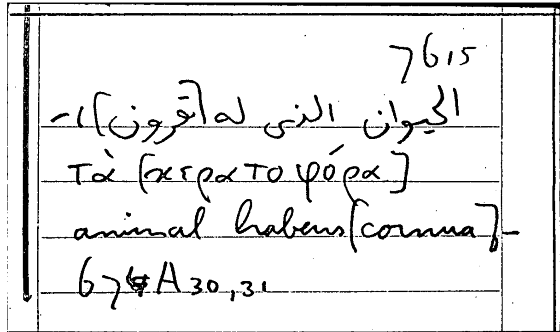 7615
الحيوان الذى له [قرون] -1
τὰ [κερατοφόρα]
animal habens [cornua] -
674 A 30,31